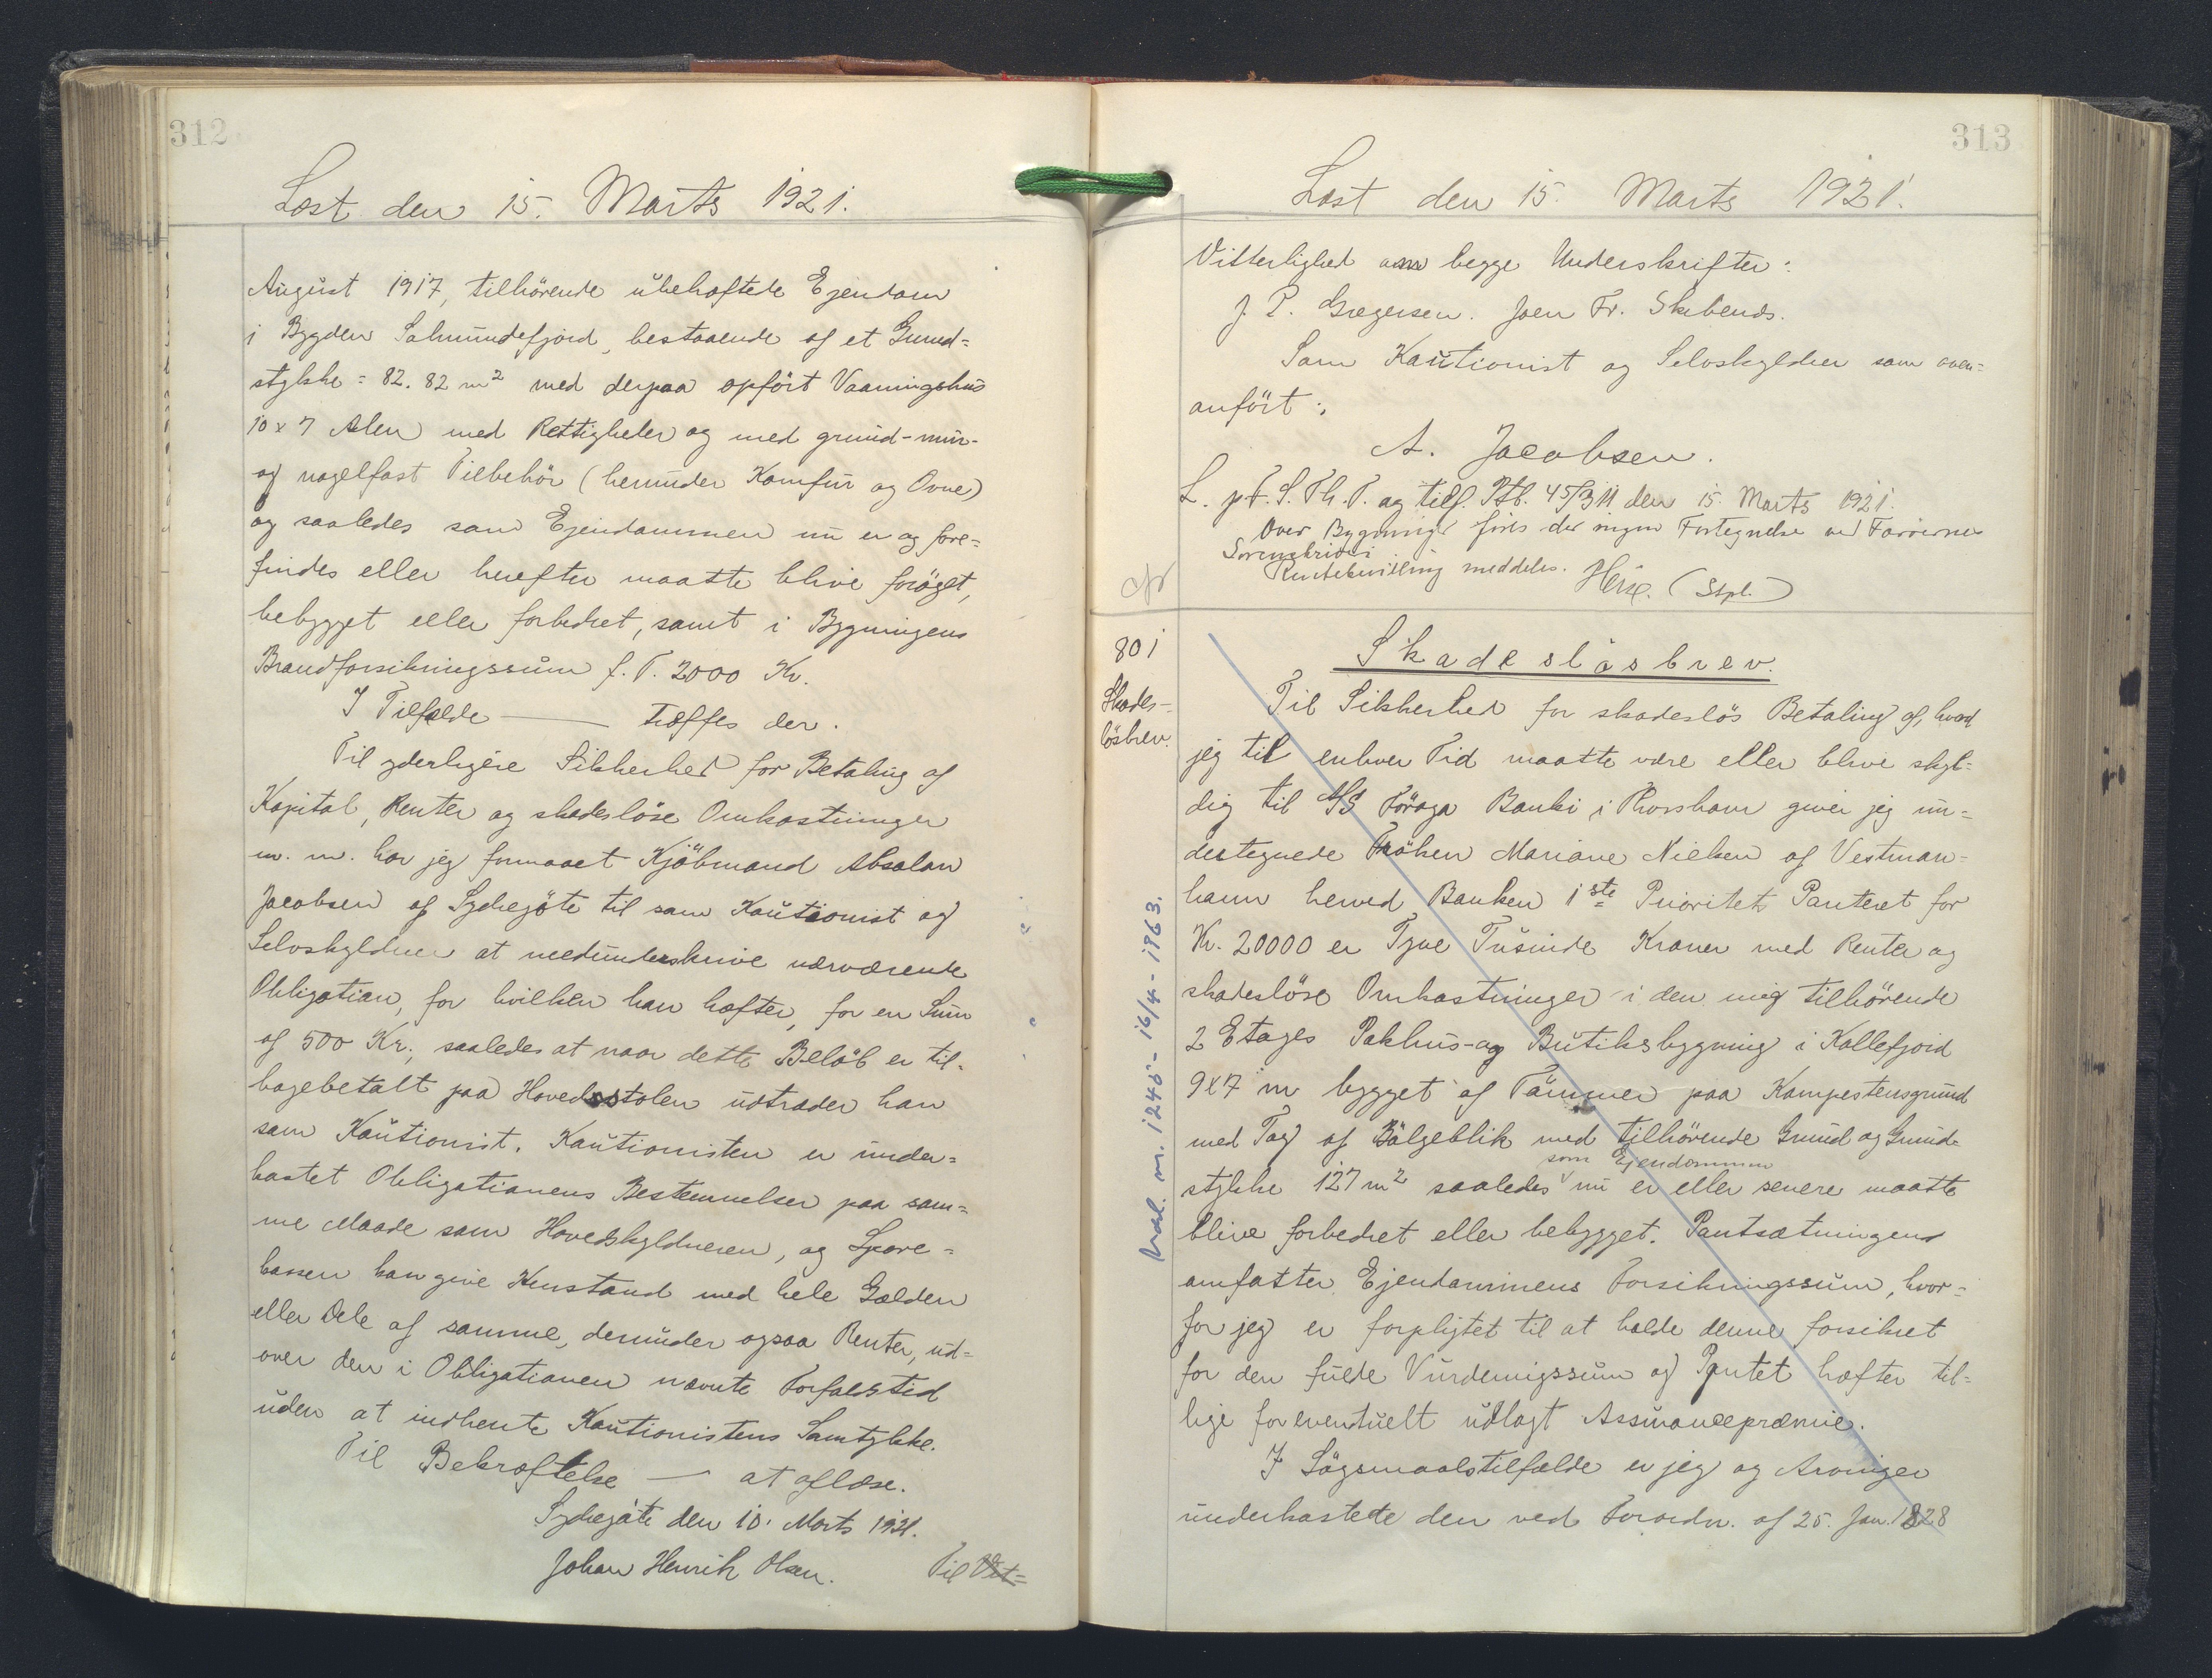 312
Læst den 15. Marts 1921.
August 1917, tilhörende ubehæftede Ejendom
i Bygden Salmundefjord, bestaaende af et Grund=
stykke = 82.82 m² med derpaa opfört Vaaningshus
10 x 7 Alen med Rettigheder og med grund-mur-
og nagelfast Tilbehör (herunder Komfur og Ovne)
og saaledes som Ejendommen nu er og fore=
findes eller herefter maatte blive forøget,
bebygget eller forbedret, samt i Bygningens
Brandforsikringssum f. T. 2000 Kr.
I Tilfælde — træffes der.
Til yderligere Sikkerhed for Betaling af
Kapital, Renter og skadesløse Omkostninger
m. m. har jeg formaaet Kjöbmand Absalon
Jacobsen af Sydregöte til som Kautionist og
Selvskyldner at medunderskrive nærværende
Obligation, for hvilken han hæfter, for en Sum
af 500 Kr., saaledes at naar dette Belöb er til-
bagebetalt paa Hovedstolen udtræder han
som Kautionist. Kautionisten er under=
kastet Obligationens Bestemmelser paa sam=
me Maade som Hovedskyldneren, og Spare=
kassen kan give Henstand med hele Gælden
eller Dele af samme, derunder ogsaa Renter, ud=
over den i Obligationen nævnte Forfaldstid
uden at indhente Kautionistens Samtykke.
Til Bekræftelse — at aflæse.
Sydregöte den 10. Marts 1921.
Johan Henrik Olsen.
Til Vit=
313
Læst den 15. Marts 1921.
Vitterlighed om begge Underskrifter:
J. P. Gregersen. Joen Fr. Skibenæs.
Som Kautionist og Selvskyldner som oven=
anfört:
A. Jacobsen.
L. p. F. S. Th. T. og tilf. Ptb. 45/311 den 15. Marts 1921.
Over Bygninger föres der ingen Fortegnelse ved Færöernes
Sorenskriveri
Rentebevilling meddeles. (Stpl.)
cfr
801
Skades-
lösbrev.
Skadeslösbrev.
Til Sikkerhed for skadeslös Betaling af, hvad
jeg til enhver Tid maatte være eller blive skyl=
dig til A/S Föroya Banki i Thorshavn giver jeg un=
dertegnede Fröken Mariane Nielsen af Vestman=
havn herved Banken 1ste Prioritets Panteret for
Kr. 20000 er Tyve Tusinde Kroner med Renter og
skadeslöse Omkostninger i den mig tilhörende
2 Etages Pakhus- og Butiksbygning i Kollefjord
9x7 m bygget af Tömmer paa Kampestensgrund
med Tag af Bölgeblik med tilhörende Grund og Grund-
som Ejendommen
stykke 127 m² saaledes nu er eller senere maatte
blive forbedret eller bebygget. Pantsætningen
omfatter Ejendommens Forsikringssum, hvor=
for jeg er forpligtet til at holde denne forsikret
for den fulde Vurderingssum og Pantet hæfter til=
lige for eventuelt udlagt Assurancepræmie.
I Sögsmaalstilfælde er jeg og Arvinger
underkastede den ved Forordn. af 25. Jan. 1828
kval. m. 1245 - 16/4 - 1963.